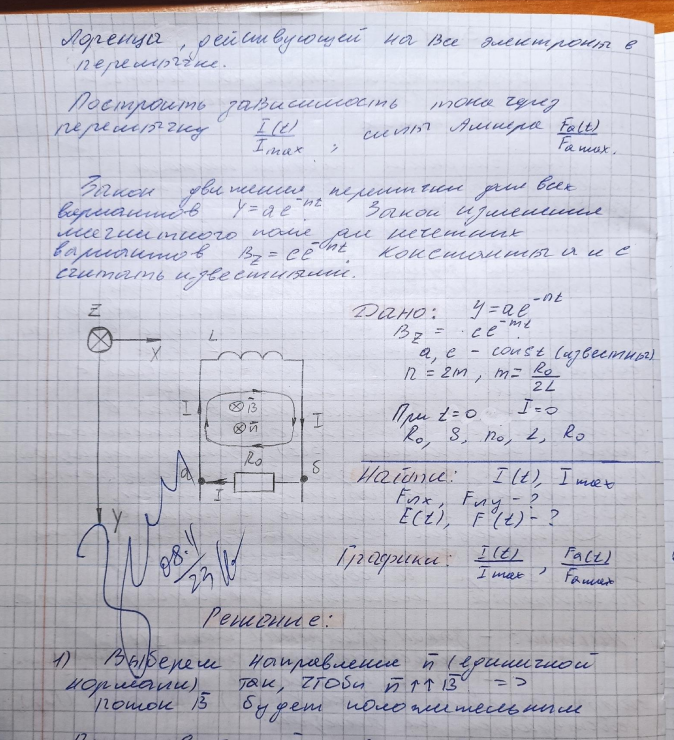 Лоренца, действующей на все электроны в
перемычке.
Построить зависимость тока через
перемычку I(t)/Imax, силы Ампера Fa(t)/Fa max.
Закон движения перемычки для всех
вариантов y=ae^-nt. Закон изменения
магнитного поля для нечетных
вариантов Bz=ce^-mt. Константы a и c
считать известными.
Z
X
Y
L
I
I
B̄
n̄
R₀
I
а
б
08.11/23
Дано: y=ae^-nt
Bz = ce^-mt
a, c - const (известны)
n = 2m, m= R₀/2L
При t=0 I=0
R₀, S, n₀, L, R₀
Найти: I(t), Imax
Fлх, Fлу - ?
E(t), F(t) - ?
Графики: I(t)/Imax, Fa(t)/Fa max
Решение:
1) Выберем направление n̄ (единичной
нормали) так, чтобы n̄ ↑↑ B̄ =>
поток B̄ будет положительным